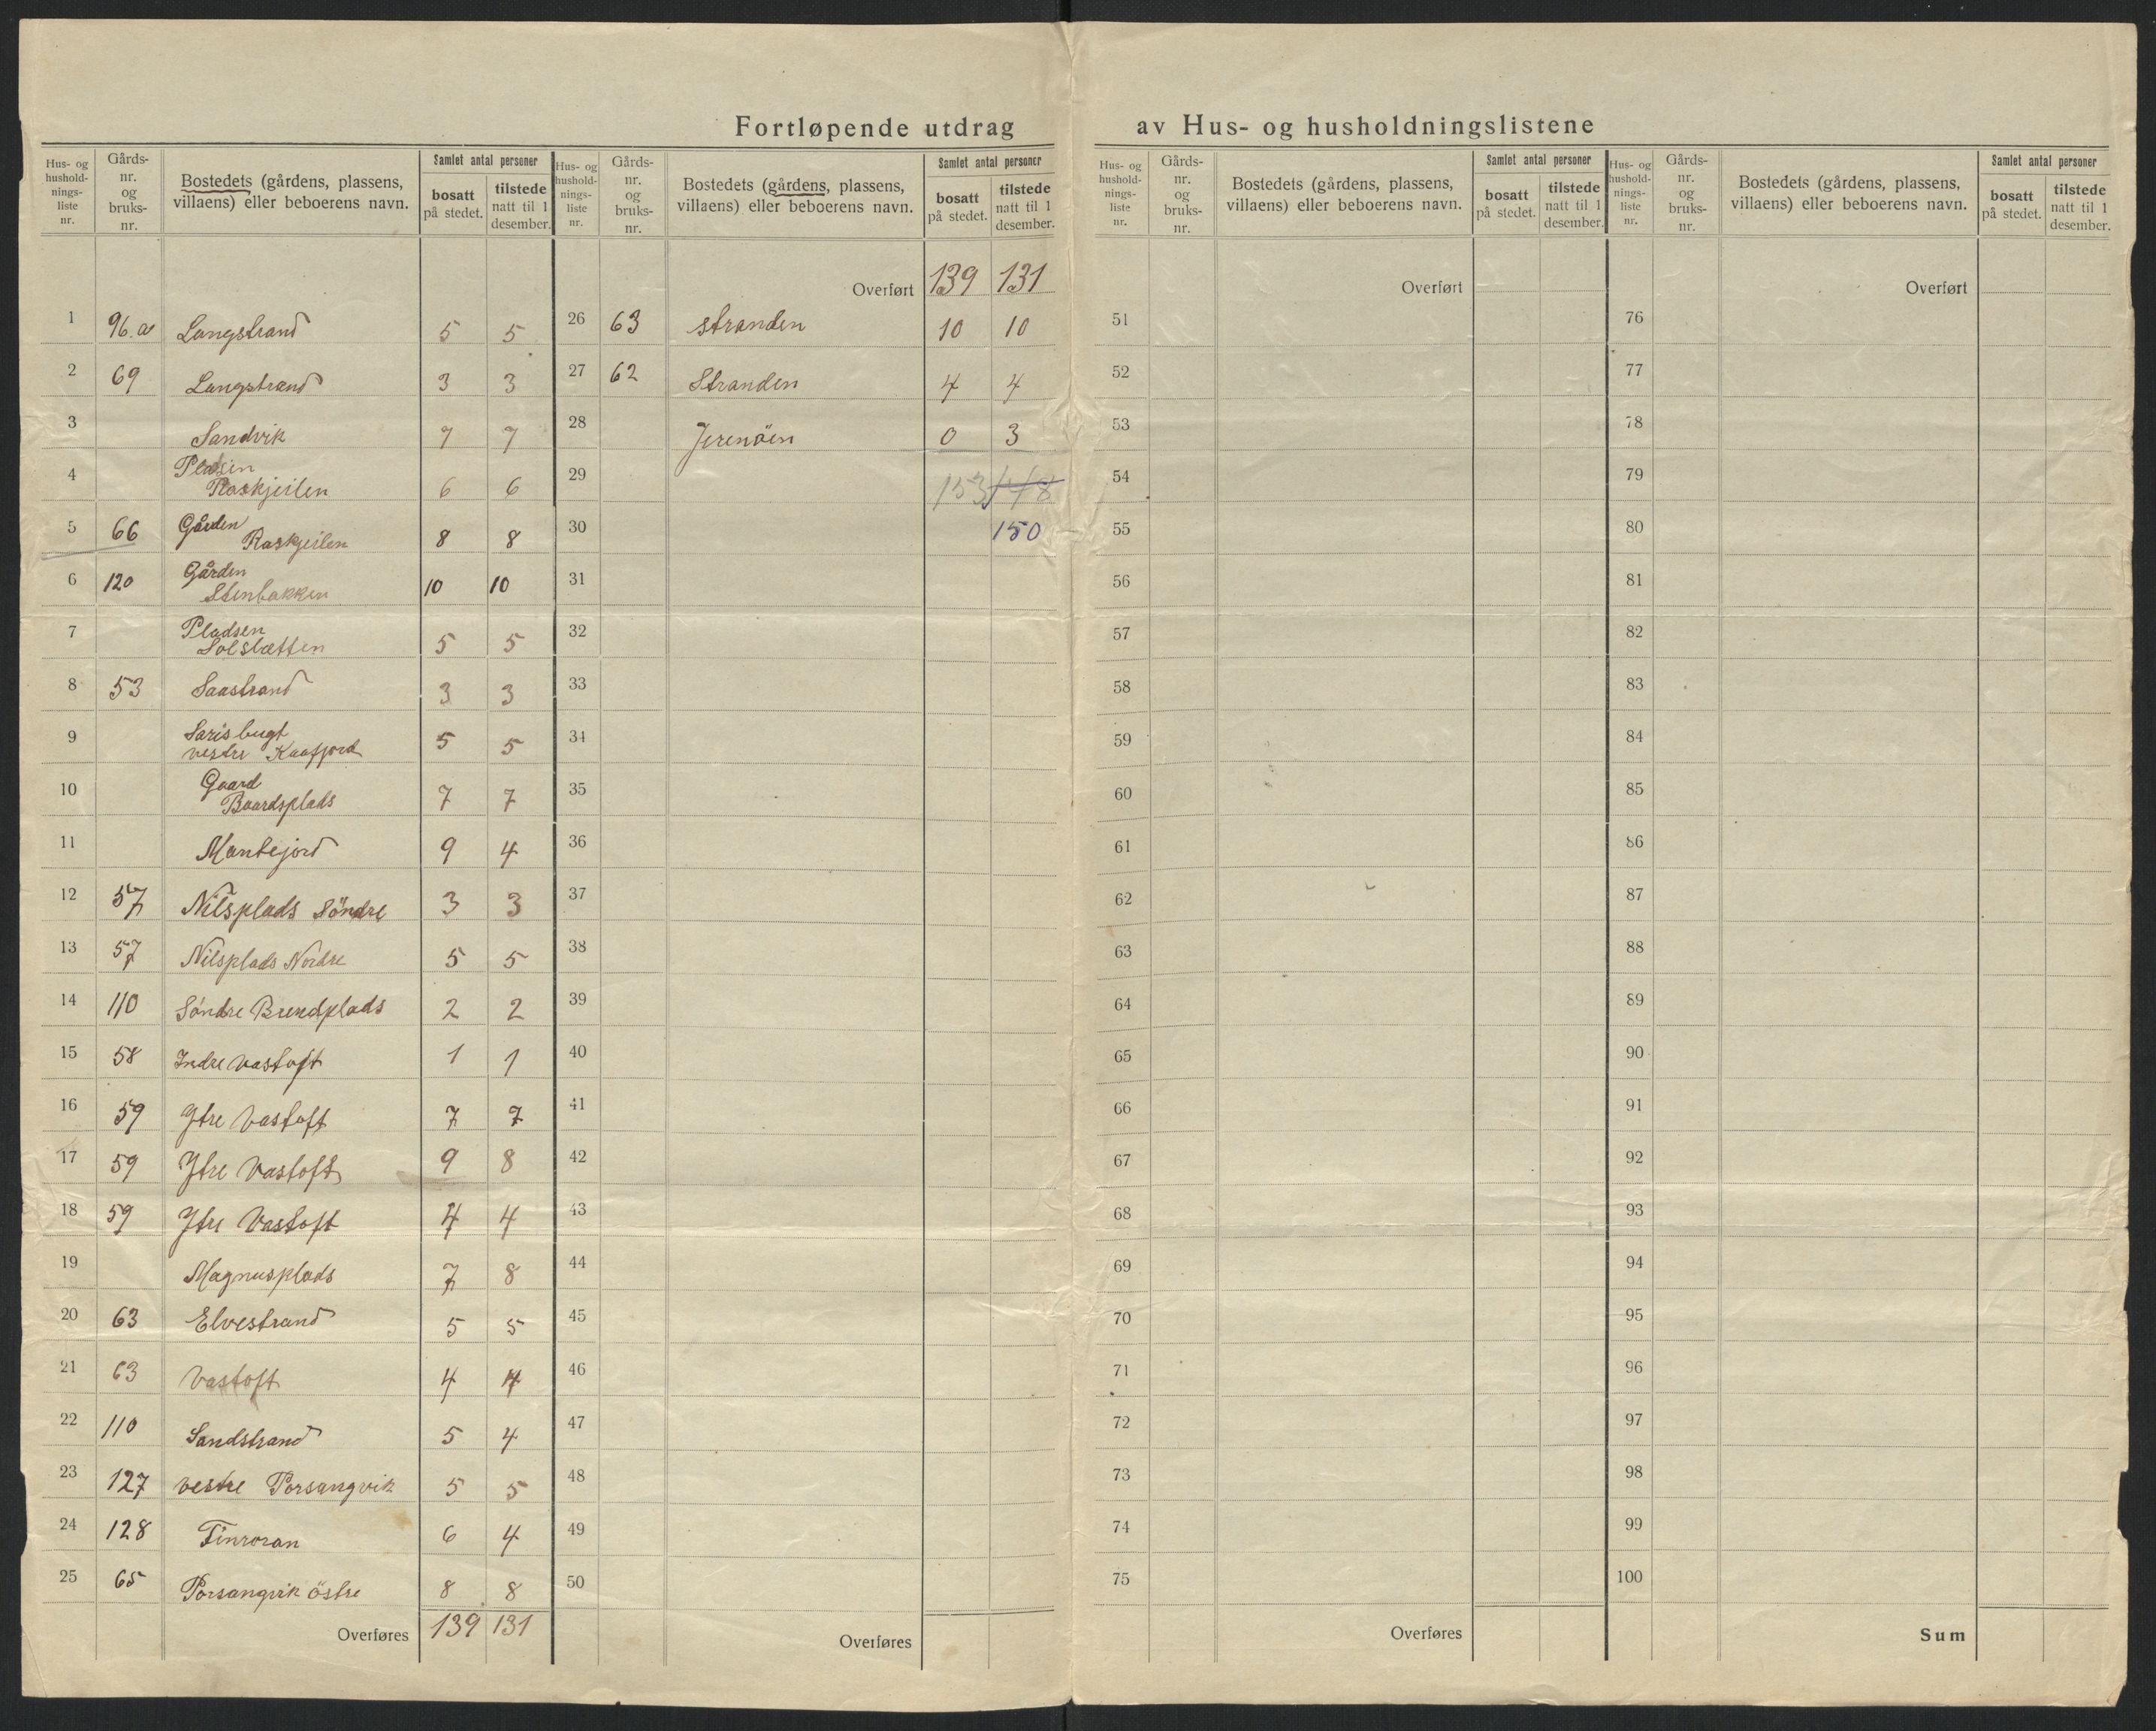 Fortløpende utdrag av Hus- og husholdningslistene
Hus- og hushold-nings-liste nr. Gårds-nr. og bruks-nr. Bostedets (gårdens, plassens, villaens) eller beboerens navn. Samlet antal personer bosatt på stedet. tilstede natt til 1 desember.
1 96.a Langstrand 5 5
2 69 Langstrand 3 3
3 Sandvik 7 7
4 Pladsin
Raskjeilen 6 6
5 66 Gården
Raskjeilen 8 8
6 120 Gården
Stenbakken 10 10
7 Pladsen
Solsletten 5 5
8 53 Saastrand 3 3
9 Sarisbugt
vestre Kaafjord 5 5
10 Gaard
Baardsplads 7 7
11 Mantejord 9 4
12 57 Nilsplads Söndre 3 3
13 57 Nilsplads Nordre 5 5
14 110 Söndre Brendplads 2 2
15 58 Indre Vastoft 1 1
16 59 Ytre Vastoft 7 7
17 59 Ytre Vastoft 9 8
18 59 Ytre Vastoft 4 4
19 Magnusplads 7 8
20 63 Elvestrand 5 5
21 63 Vastoft 4 4
22 110 Sandstrand 5 4
23 127 vestre Porsangvik 5 5
24 128 Finroran 6 4
25 65 Porsangvik östre 8 8
Overføres 139 131
Hus- og hushold-nings-liste nr. Gårds-nr. og bruks-nr. Bostedets (gårdens, plassens, villaens) eller beboerens navn. Samlet antal personer bosatt på stedet. tilstede natt til 1 desember.
Overført 139 131
26 63 Stranden 10 10
27 62 Stranden 4 4
28 Jerenöen 0 3
29 153 148
30 150
31
32
33
34
35
36
37
38
39
40
41
42
43
44
45
46
47
48
49
50
Overføres
Hus- og hushold-nings-liste nr. Gårds-nr. og bruks-nr. Bostedets (gårdens, plassens, villaens) eller beboerens navn. Samlet antal personer bosatt på stedet. tilstede natt til 1 desember.
Overført
51
52
53
54
55
56
57
58
59
60
61
62
63
64
65
66
67
68
69
70
71
72
73
74
75
Overføres
Hus- og hushold-nings-liste nr. Gårds-nr. og bruks-nr. Bostedets (gårdens, plassens, villaens) eller beboerens navn. Samlet antal personer bosatt på stedet. tilstede natt til 1 desember.
Overført
76
77
78
79
80
81
82
83
84
85
86
87
88
89
90
91
92
93
94
95
96
97
98
99
100
Sum